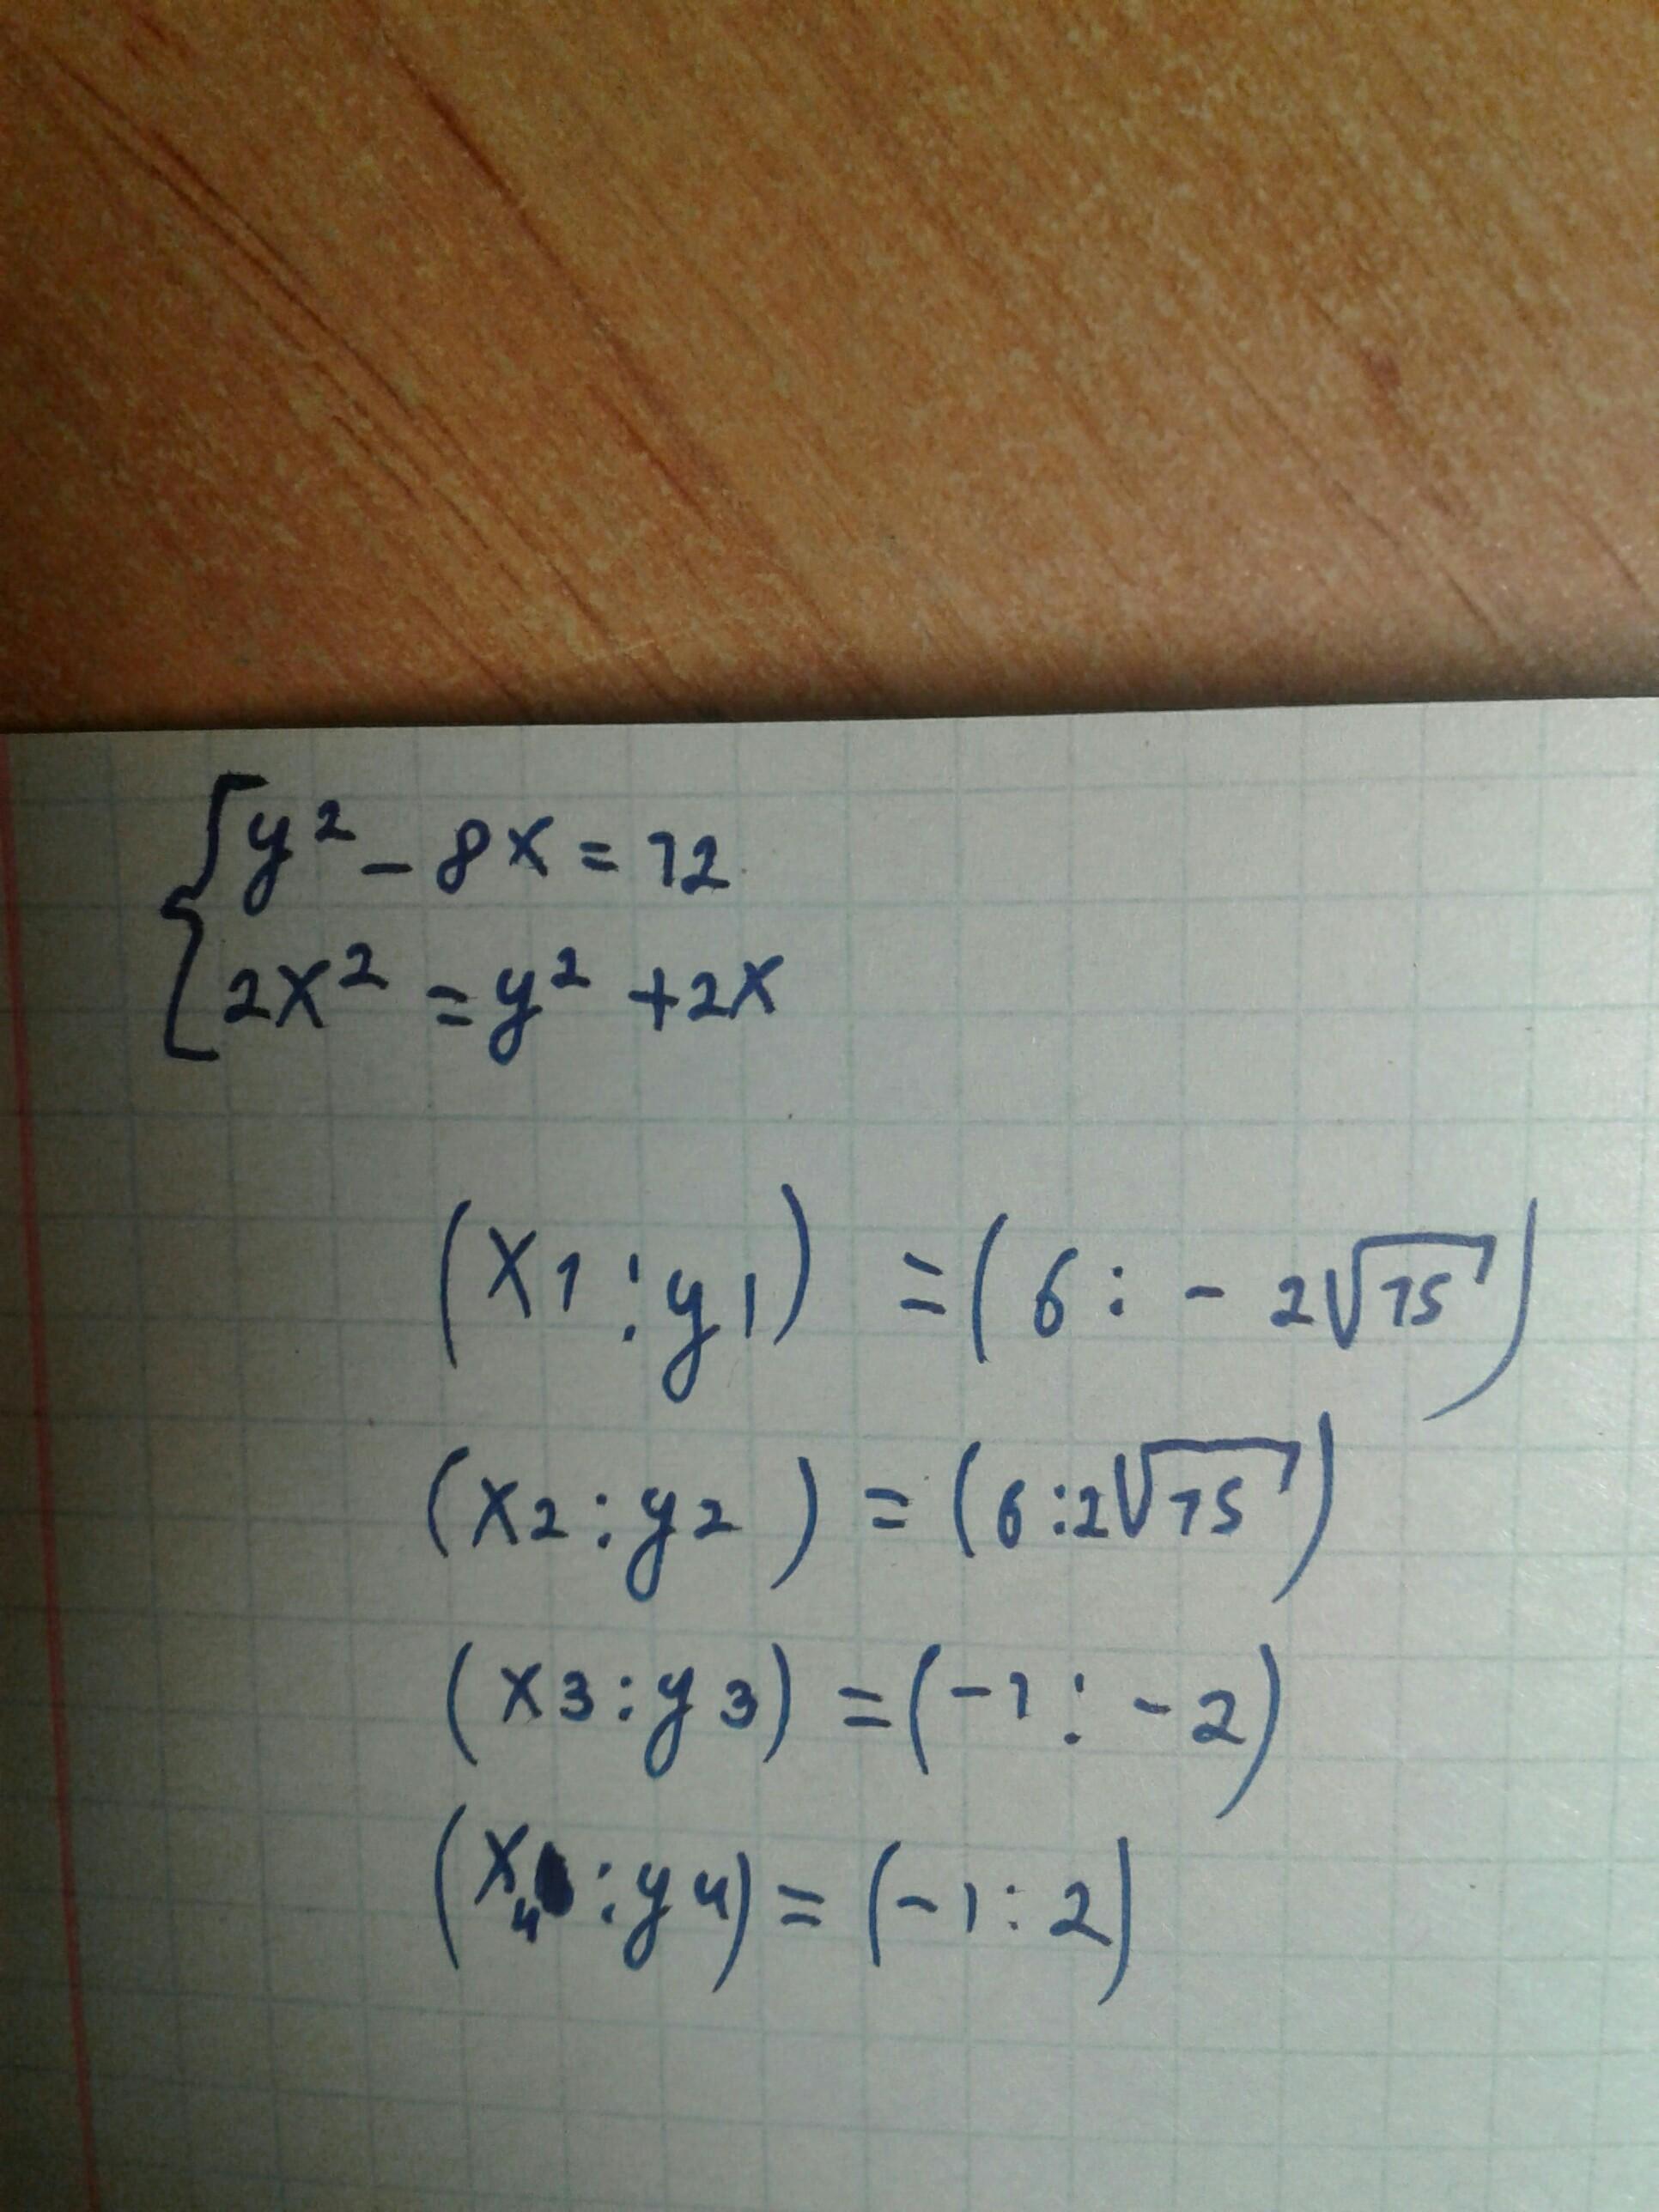 {y² - 8x = 12
2x² = y² + 2x
(x1 : y1) = (6 : - 2√15)
(x2 : y2) = (6 : 2√15)
(x3 : y3) = (-1 : -2)
(x4 : y4) = (-1 : 2)